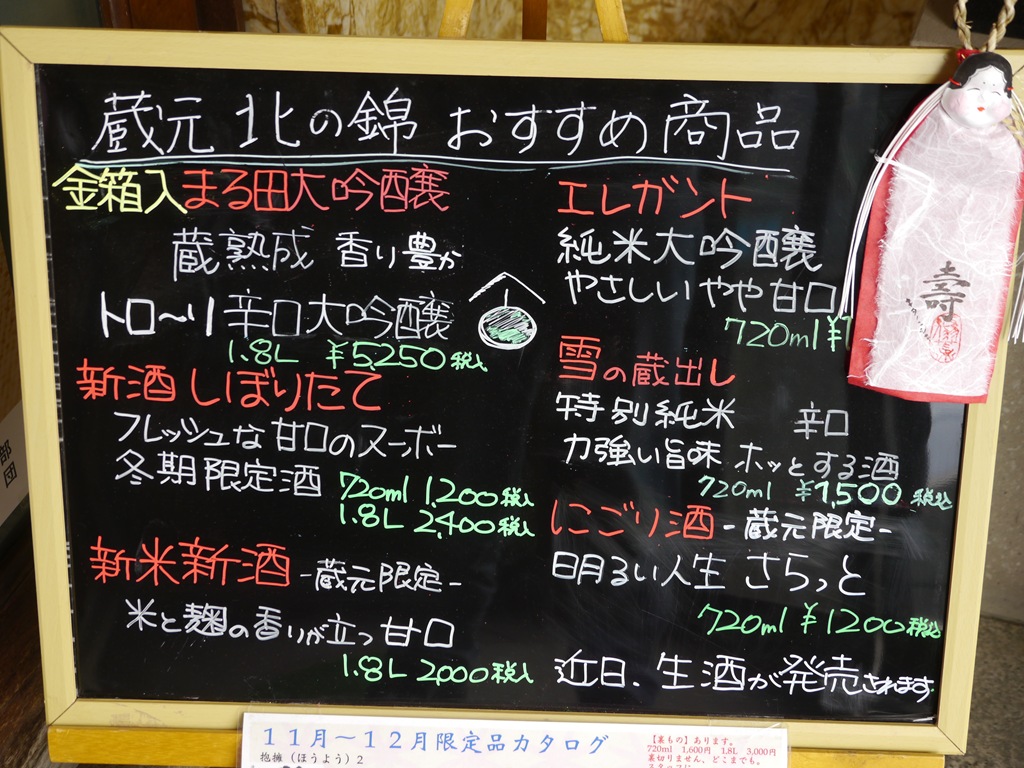 蔵元 北の錦 おすすめ商品
金箱入まる田大吟醸
蔵熟成 香り豊か
トロ〜リ 辛口大吟醸
1.8L ¥5,250税込
新酒 しぼりたて
フレッシュな甘口のヌーボー
冬期限定酒
720ml 1,200税込
1.8L 2,400税込
新米新酒 -蔵元限定-
米と麹の香りが立つ甘口
1.8L 2,000税込
エレガント
純米大吟醸
やさしい やや甘口
720ml ¥1
雪の蔵出し
特別純米 辛口
力強い旨味 ホッとする酒
720ml ¥1,500税込
にごり酒 -蔵元限定-
明るい人生 さらっと
720ml ¥1200税込
近日、生酒が発売されます
寿
部
団
11月〜12月限定品カタログ
抱擁(ほうよう)2
【裏もの】あります。
720ml 1,600円 1.8L 3,000円
裏切りません、どこまでも。